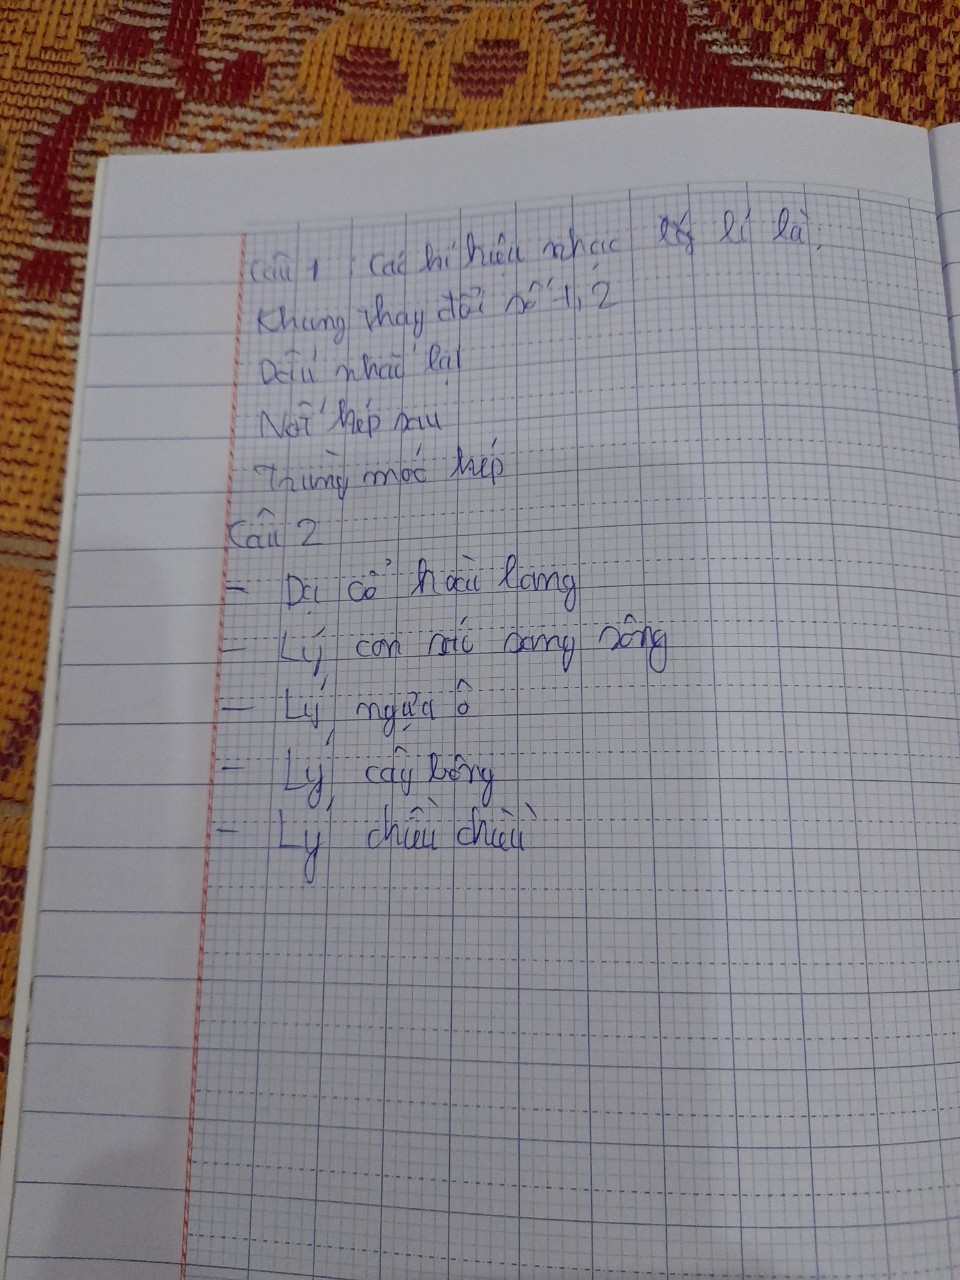 Câu 1 : Các kí hiệu nhạc lí là:
Khung thay đổi số 1, 2
Dấu nhắc lại
Nốt kép sau
Trùng móc kép
Câu 2
- Dạ cổ hoài lang
- Lý con sáo sang sông
- Lý ngựa ô
- Lý cây bông
- Lý chiều chiều